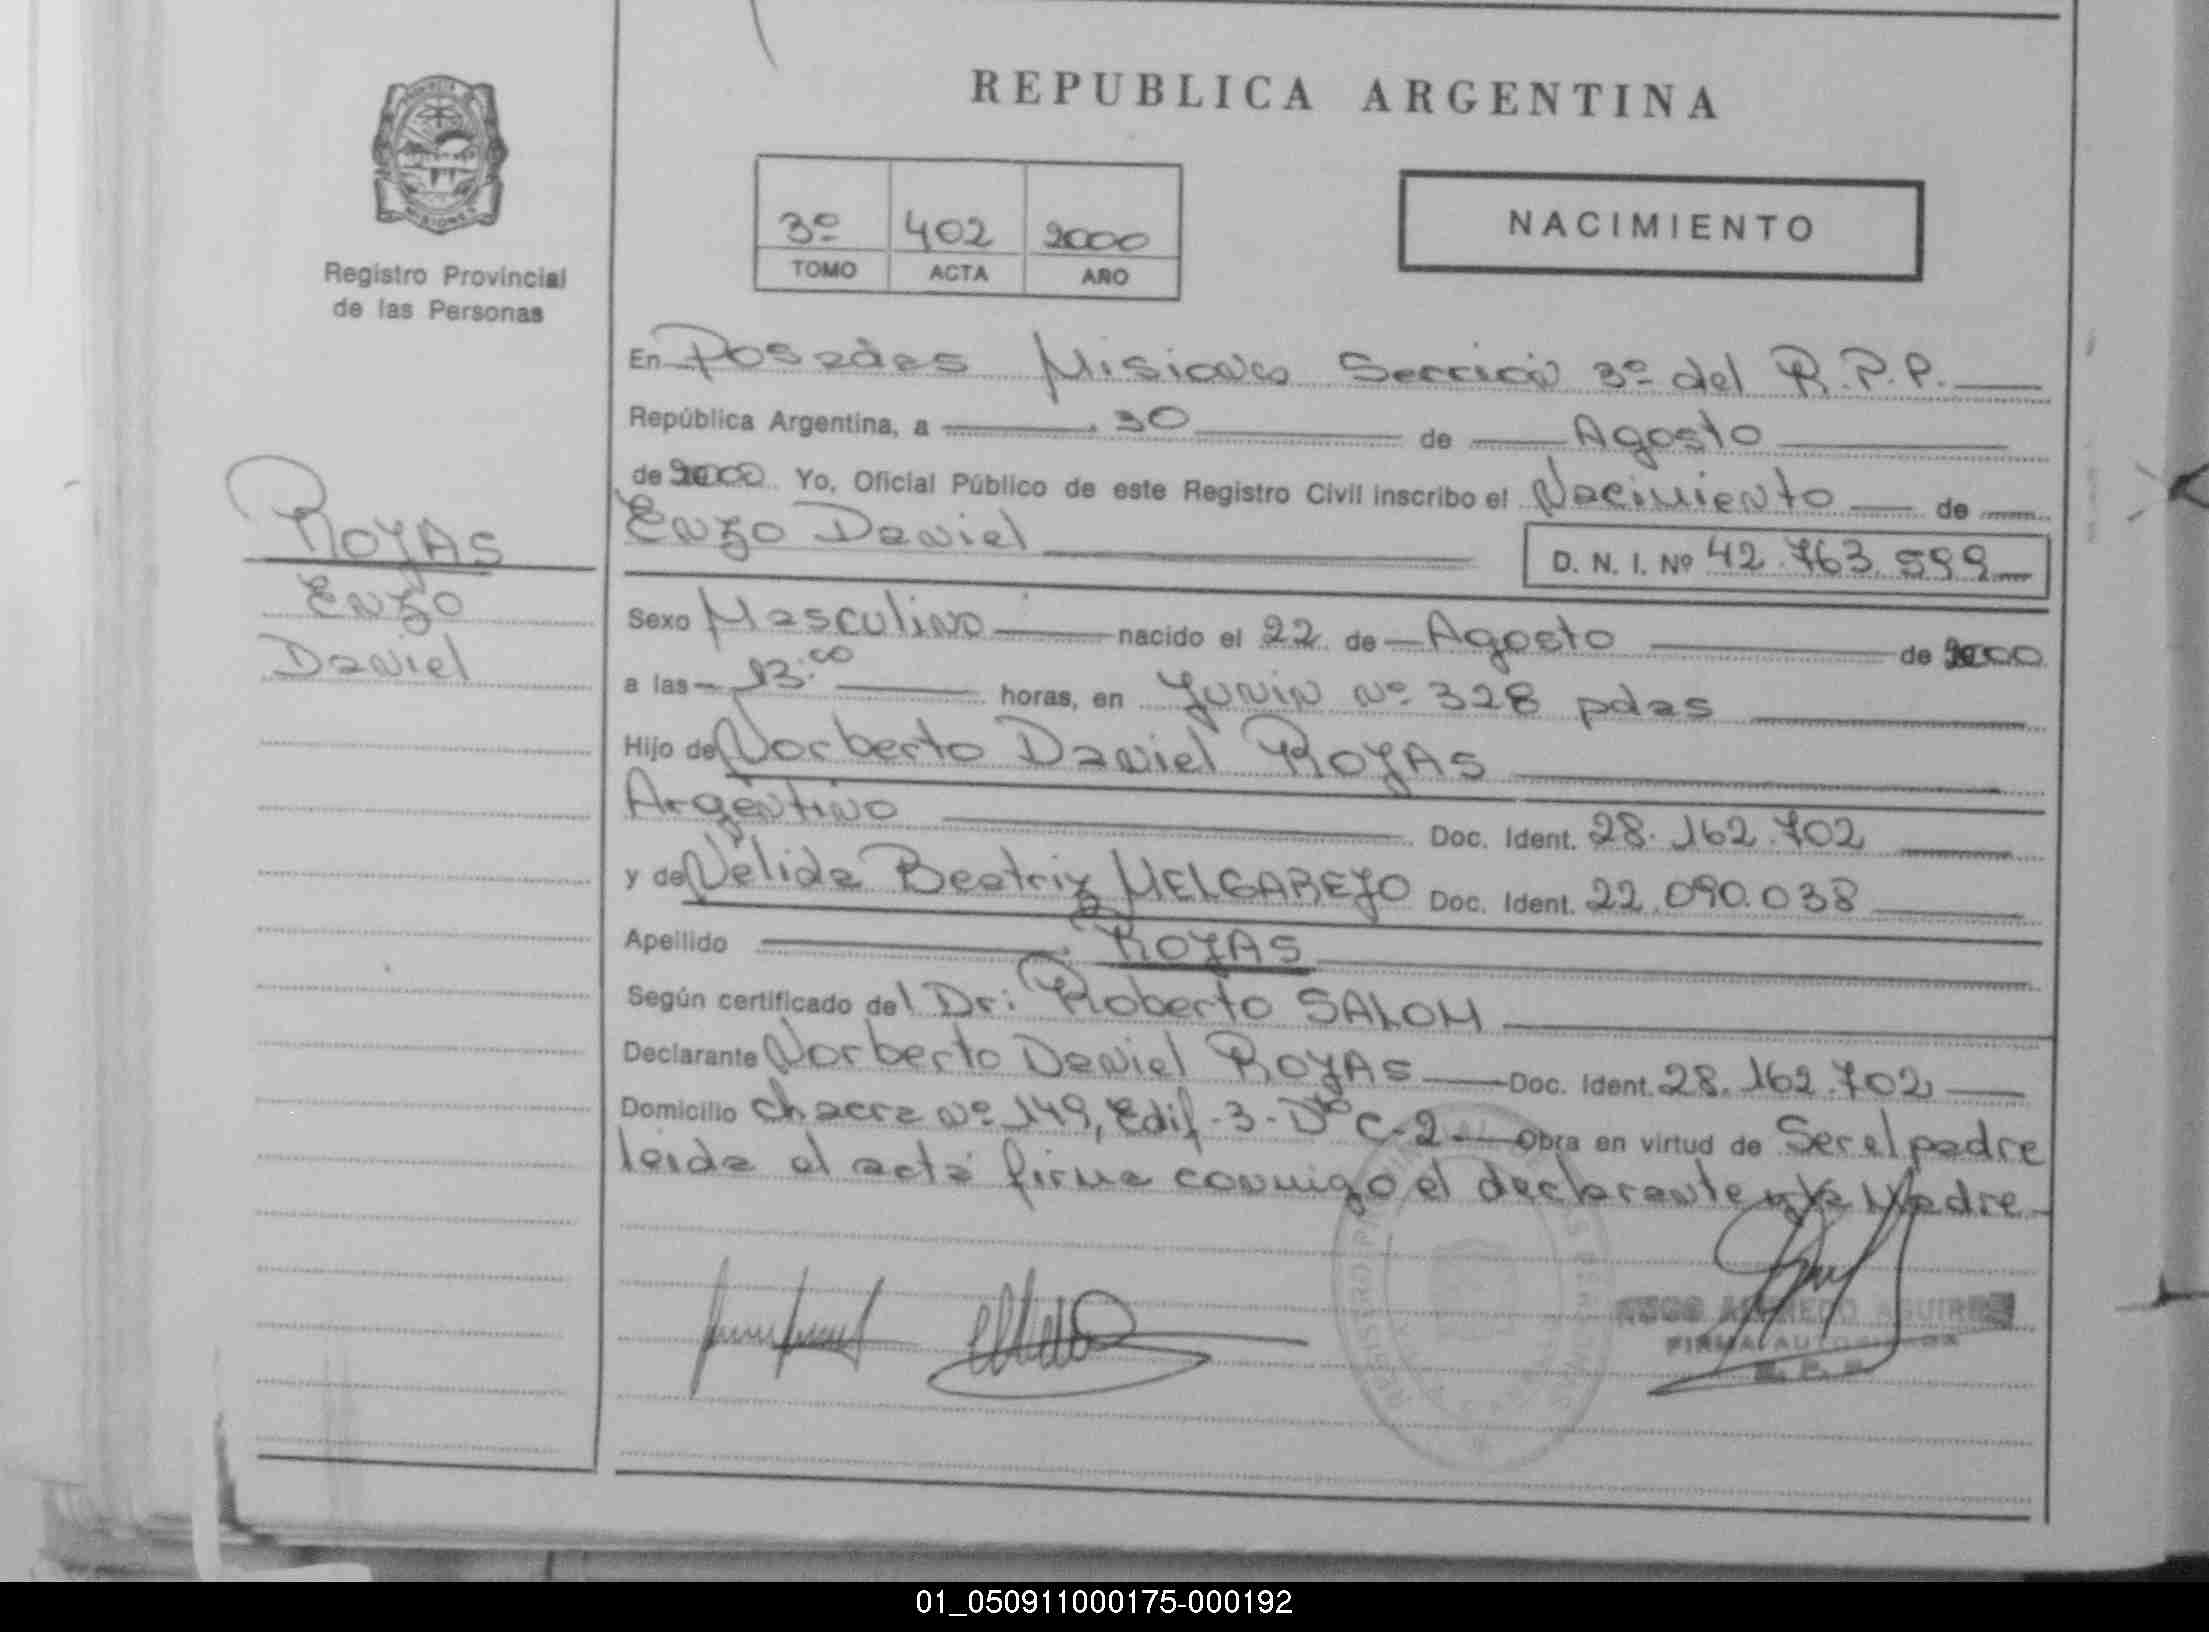 REPUBLICA ARGENTINA
Registro Provincial
de las Personas
3º 402 2000
TOMO ACTA AÑO
NACIMIENTO
En Posadas Misiones Sección 3º del R.P.P.
República Argentina, a 30 de Agosto
de 2000 Yo, Oficial Público de este Registro Civil inscribo el Nacimiento de
Enzo Daniel
D. N. I. Nº 42.763.599
ROJAS
Enzo
Daniel
Sexo Masculino nacido el 22 de Agosto de 2000
a las 13:00 horas, en Junin Nº 328 pdas
Hijo de Norberto Daniel ROJAS
Argentino Doc. Ident. 28.162.702
y de Nélida Beatriz MELGAREJO Doc. Ident. 22.090.038
Apellido ROJAS
Según certificado del Dr: Roberto SALOM
Declarante Norberto Daniel ROJAS Doc. Ident. 28.162.702
Domicilio chacra Nº 149, Edif-3-Dto C-2 Obra en virtud de Ser el padre
leida el acta firma conmigo el declarante y la Madre
AGUIRRE
01_050911000175-000192